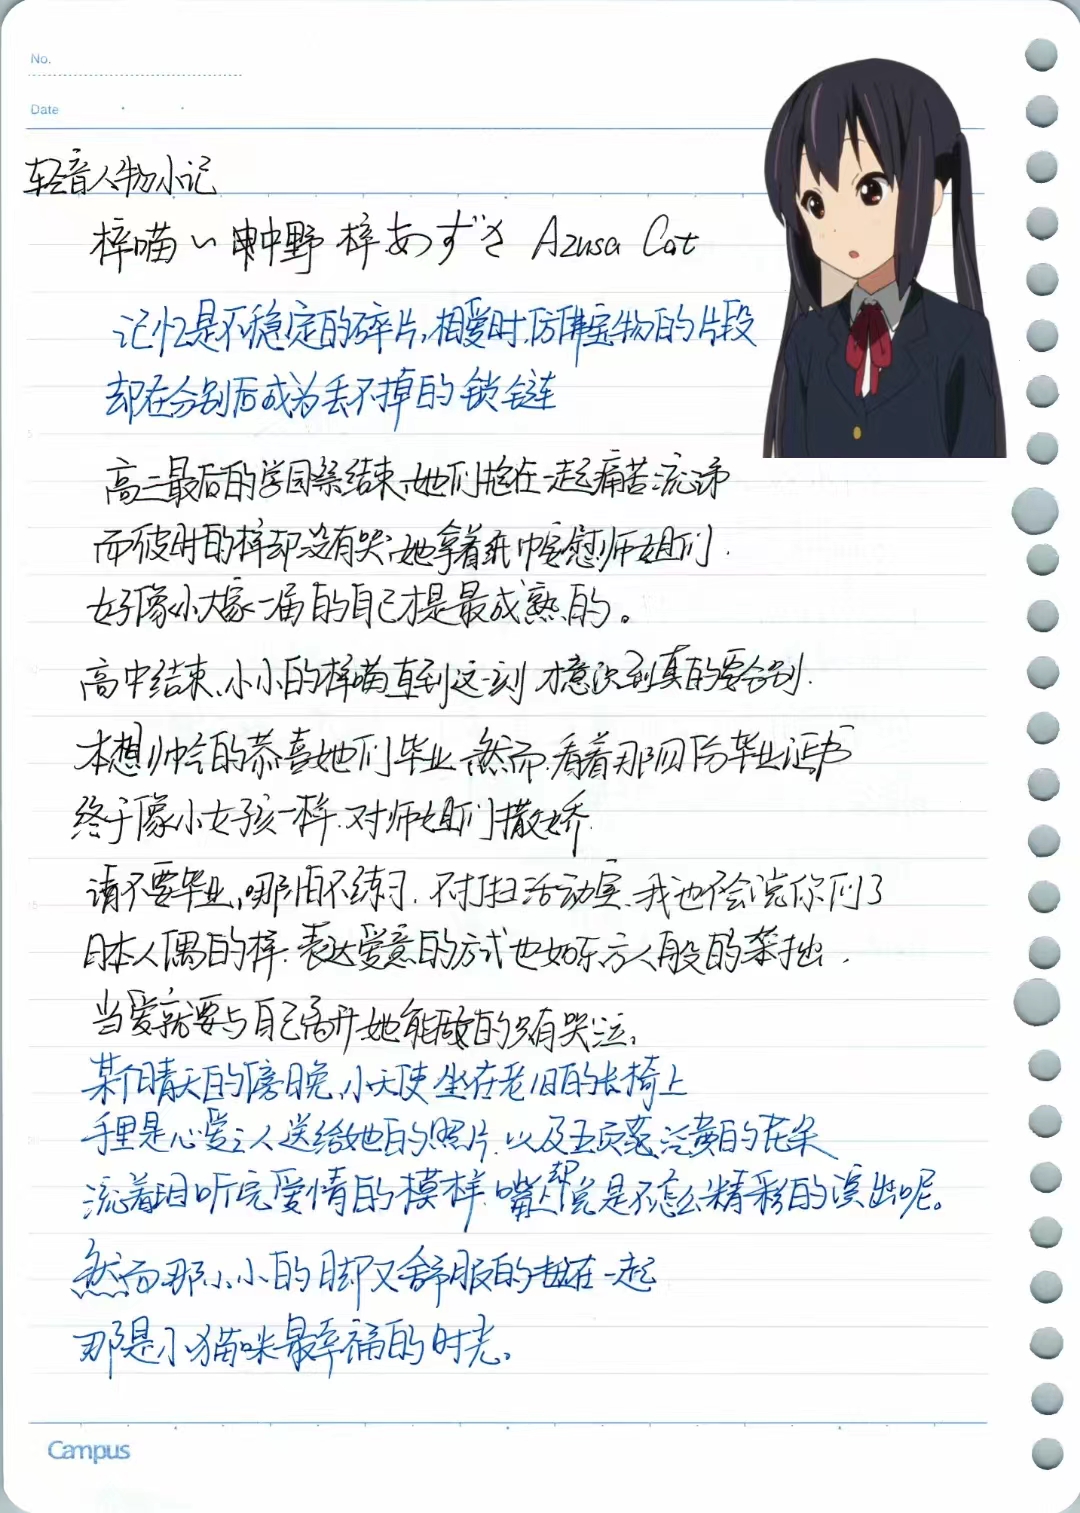 No.
Date
轻音人物小记
梓喵い 中野 梓 あずさ Azusa Cat
记忆是不稳定的碎片,相爱时,仿佛宝物的片段
却在分别后成为丢不掉的锁链
高三最后的学园祭结束,她们抱在一起痛苦流涕
而彼时的梓却没有哭,她拿着纸巾安慰师姐们.
好像小大家一届的自己才是最成熟的。
高中结束,小小的梓喵直到这一刻 才意识到真的要分别.
本想帅气的恭喜她们毕业,然而,看着那四份毕业证书
终于像小女孩一样,对师姐们撒娇.
请不要毕业,哪怕不练习,不打扫活动室,我也不会说你们了
日本人偶的梓,表达爱意的方式也如东方人般的笨拙.
当爱就要与自己离开她能做的只有哭泣。
某个晴天的傍晚,小天使坐在老旧的长椅上
手里是心爱之人送给她的照片,以及五页薄 泛黄的花朵
流着泪听完爱情的模样,嘴上却说是不怎么精彩的演出呢。
然而那小小的脚又舒服的贴在一起
那是小猫咪最幸福的时光。
Campus